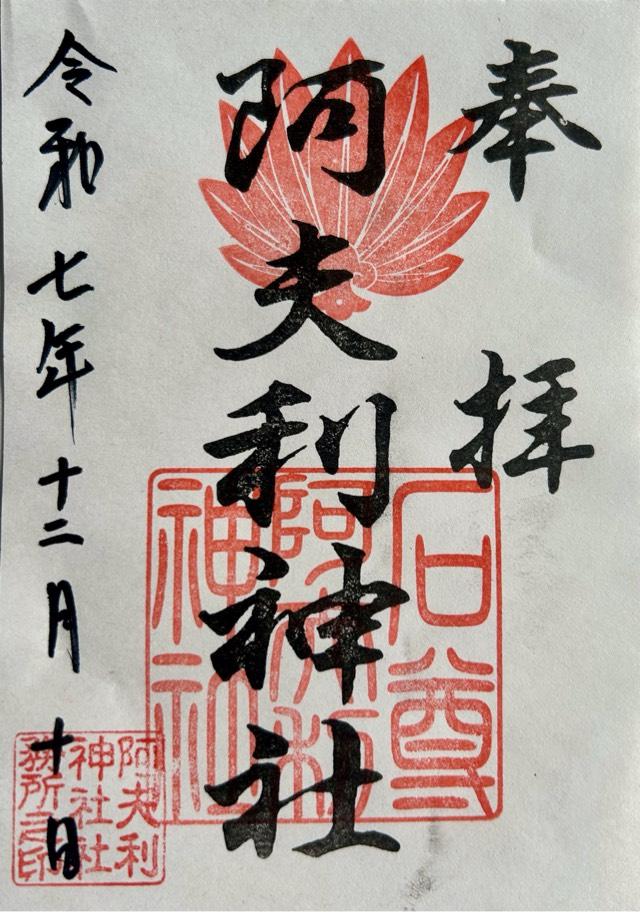 奉拝
阿夫利神社
石尊
阿夫利
神社
令和七年十二月十日
阿夫利
神社社
務所之印